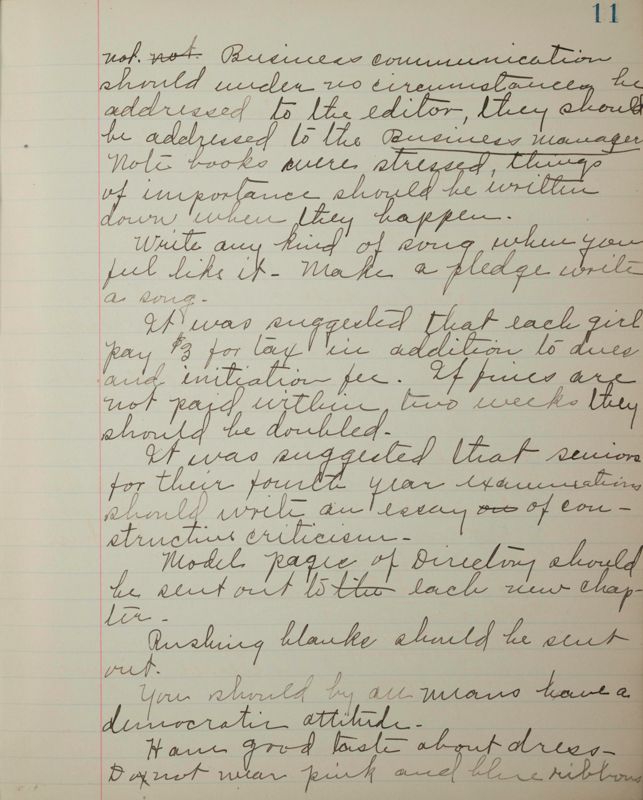 11
not. not. Business communication
should under no circumstances be
addressed to the editor, they should
be addressed to the Business Manager
Note books were stressed, things
of importance should be written
down when they happen.
Write any kind of song when you
feel like it - Make a pledge write
a song.
It was suggested that each girl
pay $3 for tax in addition to dues
and initiation fee. If fines are
not paid within two weeks they
should be doubled.
It was suggested that seniors
for their fourth year examinations
should write an essay on of con-
structive criticism.
Model pages of Directory should
be sent out to the each new chap-
ter.
Rushing blanks should be sent
out.
You should by all means have a
democratic attitude.
Have good taste about dress -
Do not wear pink and blue ribbons